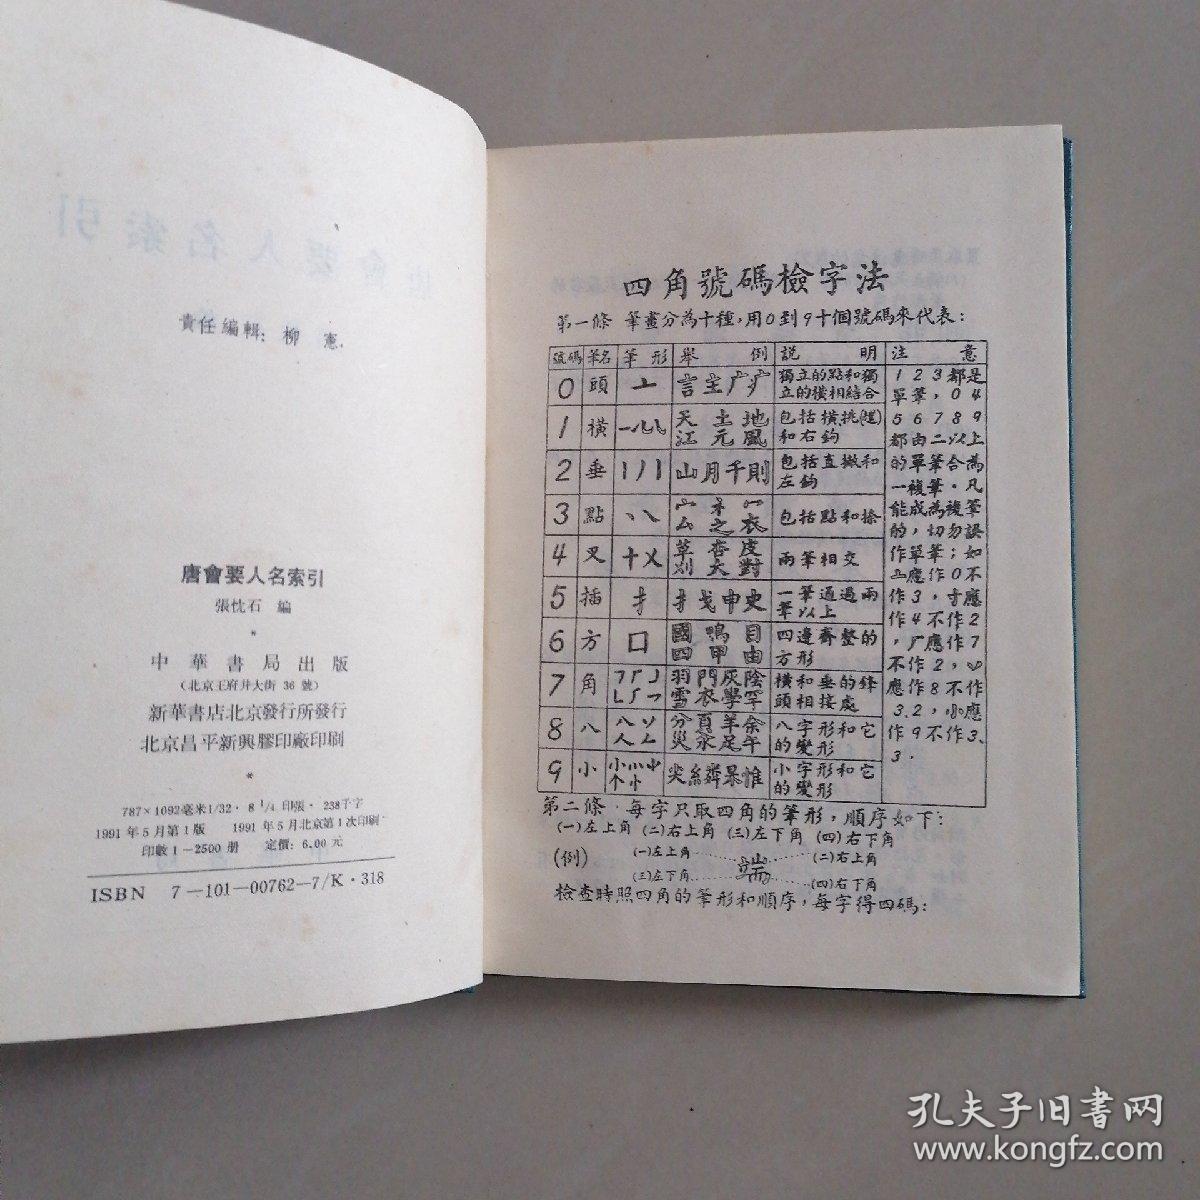 責任編輯：柳 憲
唐會要人名索引
張忱石 編
*
中華書局出版
(北京王府井大街 36 號)
新華書店北京發行所發行
北京昌平新興膠印廠印刷
*
787×1092毫米1/32·8 1/4 印張·238千字
1991年5月第1版 1991年5月北京第1次印刷
印數1—2500 册 定價：6.00元
ISBN 7—101—00762—7/K·318
四角號碼檢字法
第一條 筆畫分為十種，用0到9十個號碼來代表：
號碼 筆名 筆形 舉例 説明 注意
0 頭 亠 言主广疒 獨立的點和獨立的橫相結合
1 橫 天土地江元風 包括橫，挑(趯)和右鉤
2 垂 山月千則 包括直撇和左鉤
3 點 宀礻冖厶之衣 包括點和捺
4 叉 十乂 草杏皮刈大對 兩筆相交
5 插 扌 扌戈申史 一筆通過兩筆以上
6 方 口 國鳴目四甲由 四邊齊整的方形
7 角 羽門灰陰雪衣學罕 橫和垂的鋒頭相接處
8 八 分頁羊余災汆足午 八字形和它的變形
9 小 尖糸粦杲惟 小字形和它的變形
1 2 3 都是
單筆，0 4
5 6 7 8 9
都由二以上
的單筆合為
一複筆。凡
能成為複筆
的，切勿誤
作單筆；如
亠應作0不
作3，寸應
作4不作2
，厂應作7
不作2，
應作8不作
3.2，小應
作9不作3、
3．
第二條·每字只取四角的筆形，順序如下：
(一)左上角 (二)右上角 (三)左下角 (四)右下角
(例) (一)左上角 端 (二)右上角
(三)左下角 (四)右下角
檢查時照四角的筆形和順序，每字得四碼：
孔夫子旧书网
www.kongfz.com